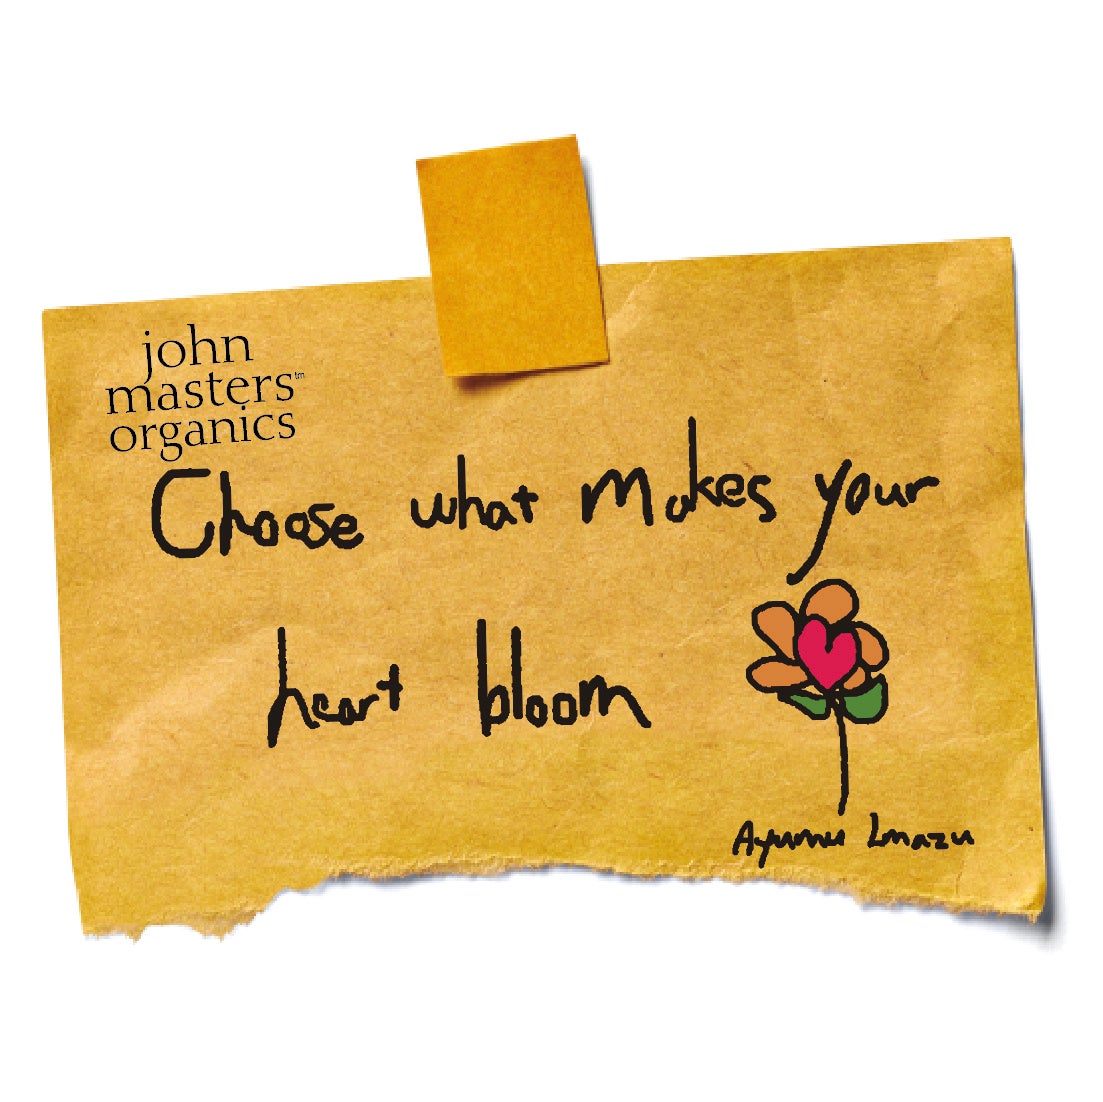 john
masters™
organics
Choose what makes your
heart bloom
Ayumu Imazu